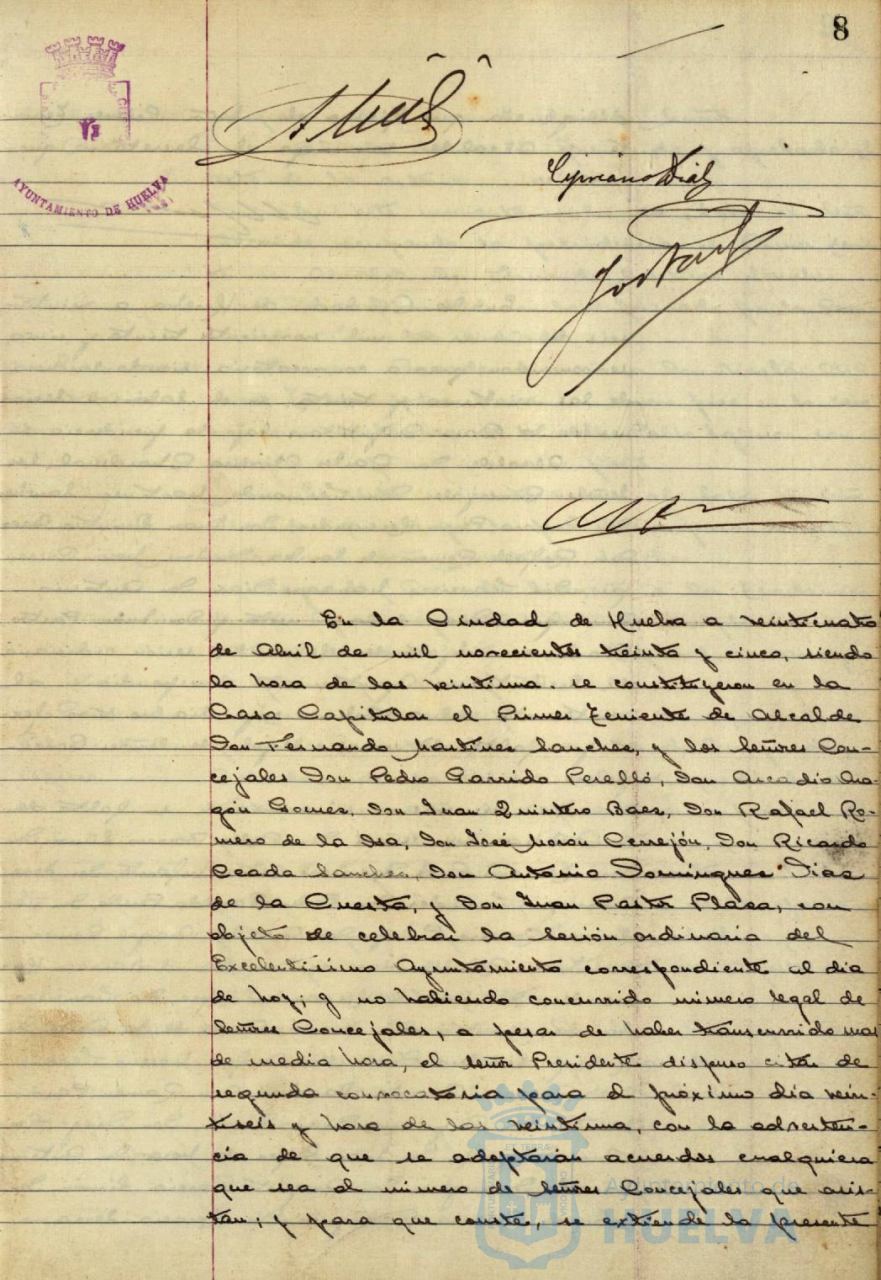 8
AYUNTAMIENTO DE HUELVA
Cipriano Diaz
En la Ciudad de Huelva a veinticuatro
de Abril de mil novecientos treinta y cinco, siendo
la hora de las veintiuna. se constituyeron en la
Casa Capitular el Primer Teniente de Alcalde
Don Fernando Martinez Sanchez, y los Señores Con-
cejales Don Pedro Garrido Perelló, Don Arcadio Ara-
gón Gomez, Don Juan Quintero Baez, Don Rafael Ro-
mero de la Isa, Don José Morón Cerrejón, Don Ricardo
Ceada Sanchez, Don Antonio Dominguez Diaz
de la Cuesta, y Don Juan Pastor Plaza, con
objeto de celebrar la sesión ordinaria del
Excelentísimo Ayuntamiento correspondiente al dia
de hoy; y no habiendo concurrido número legal de
Señores Concejales, a pesar de haber transcurrido mas
de media hora, el señor Presidente dispuso citar de
segunda convocatoria para el próximo dia vein-
tiseis y hora de las veintiuna, con la adverten-
cia de que se adoptarán acuerdos cualquiera
que sea el número de Señores Concejales que asis-
tan; y para que conste, se extiende la presente
Ayuntamiento de
HUELVA